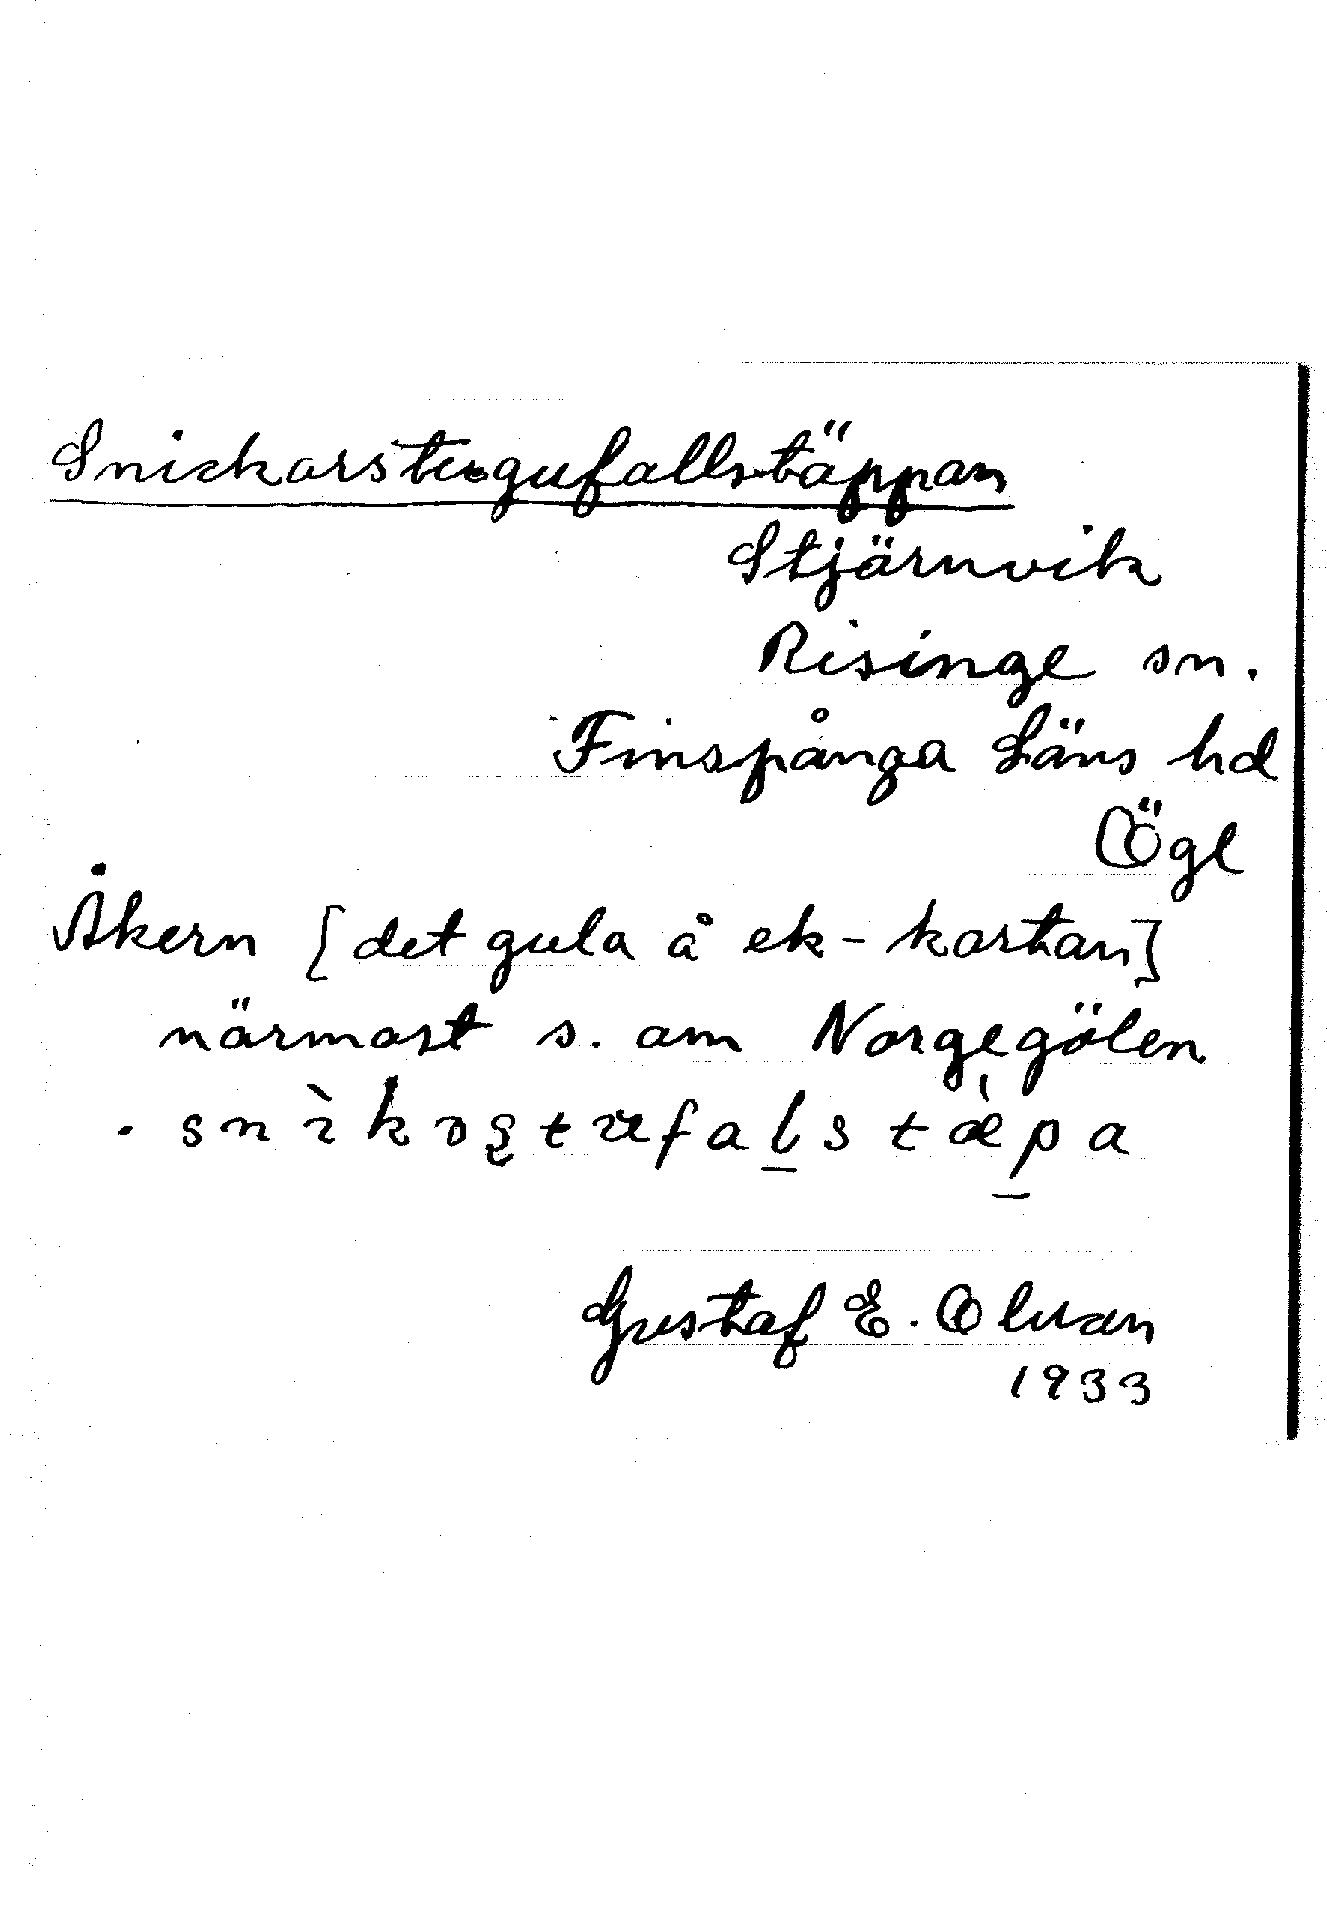 Snickarstugufallstäppan
Stjärnvik
Risinge sn.
Finspånga Läns hd
Ögl
Åkern [det gula å ek-kartan]
närmast s. om Norgegölen
Gustaf E. Olvan
1933